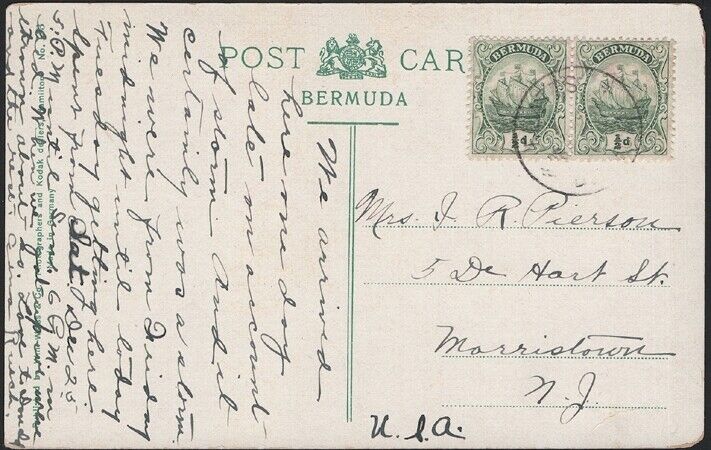 POST CAR
BERMUDA
BERMUDA
BERMUDA
½d
½d
We arrived
here one day
late on account
of storm. And it
certainly was a storm.
We were from Friday
midnight until today
Tuesday getting here.
Spent from Sat. Dec 25
5 P.M. until Sun. 6 P.M. in
Love to
Mrs. J. R Pierson
5 De Hart St.
Morristown
N. J.
U. S. A.